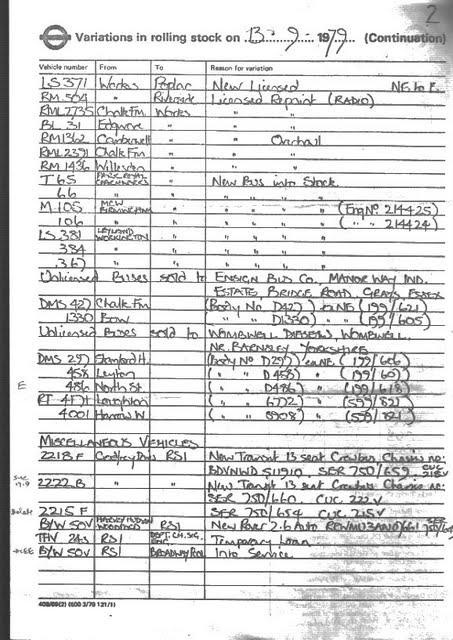 2
Variations in rolling stock on 13-9-1979 (Continuation)
Vehicle number From To Reason for variation
LS 371 Works Poplar New Licensed NE to E.
RM 504 " Riverside Licensed Repaint (RADIO)
RML 2735 Chalk Fm Works " "
BL 31 Edgware " " "
RM 1362 Camberwell " " Overhaul
RML 2391 Chalk Fm " " "
RM 1436 Willesden " " "
T 65 PARK ROYAL COACHWORKS " New Bus into Stock
66 " " " " "
M 105 MCW BIRMINGHAM " " " " (Eng No. 214425)
106 " " " " " ( " " 214424)
LS 381 LEYLAND WORKINGTON " " " "
384 " " " " "
367 " " " " "
Unlicensed Buses sold to ENSIGN BUS CO. MANOR WAY IND.
ESTATE BRIDGE ROAD GRAYS ESSEX
DMS 427 Chalk Fm (Body No D427) (199/621)
1330 Bow ( " " D1330) " (199/605)
Unlicensed Buses sold to WOMBWELL DIESELS, WOMBWELL.
NR. BARNSLEY YORKSHIRE
DMS 257 Stamford H. (Body No D257) (199/606)
458 Leyton ( " " D458) " (199/607)
E 486 North St. ( " " D486) " (199/618)
RT 4171 Loughton ( " " 6772) " (599/821)
4001 Harrow W. ( " " 8908) " (599/821)
MISCELLANEOUS VEHICLES
2218 F Godfrey Davis RSI New Transit 13 seat Crewbus Chassis no:
BDVNWD 511910 SER 750/659. CUC 218V
2222 B " " New Transit 13 seat Crewbus Chassis no:
17.9 SER 750/660. CUC 222V
2215 F SER 750/654 CUC 215V
B/W 50V HARVEY HUDSON WOODFORD RSI New Rover 2.6 Auto
THV 24s RSI DEPT. CH. SIG. ENG. Temporary Loan
B/W 50V RSI BROADWAY POOL Into Service
409/69(2) (600 3/79 121/1)